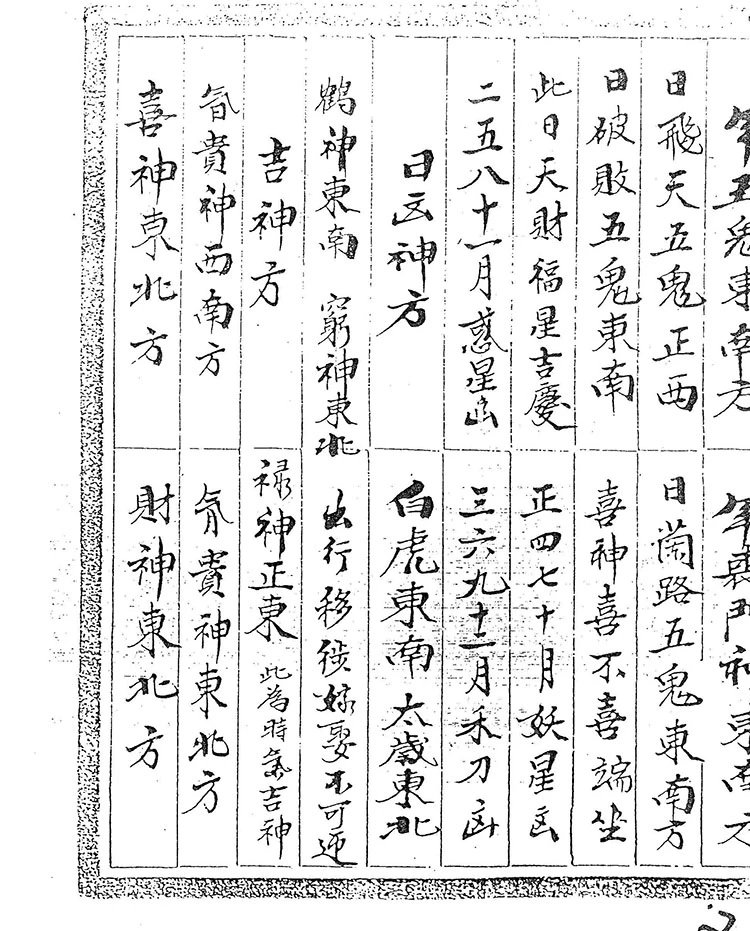 年五鬼東南方 年喪門神東南方
日飛天五鬼正西 日蘭路五鬼東南方
日破敗五鬼東南 喜神喜不喜端坐
此日天財福星吉慶 正四七十月妖星凶
二五八十一月惑星凶 三六九十二月禾刀凶
日凶神方 白虎東南太歲東北
鶴神東南 窮神東北 出行移徙嫁娶不可迎
吉神方 祿神正東 此為時氣吉神
昏貴神西南方 貴神東北方
喜神東北方 財神東北方